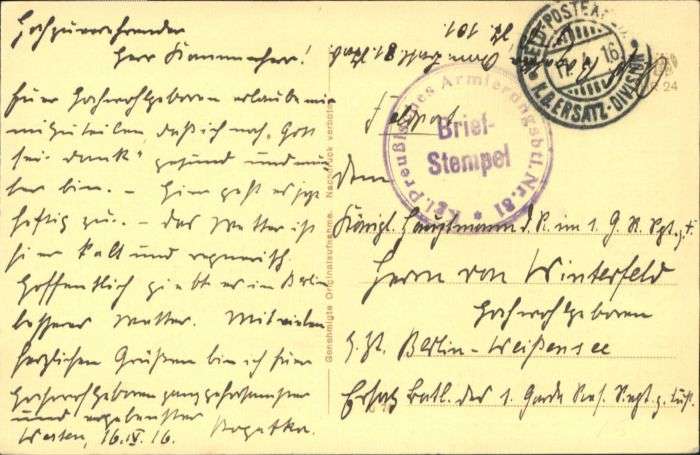 Hochzuverehrender
Herr Kammerherr!
Euer Hochwohlgeboren erlaube mir
mitzuteilen, daß ich noch „Gott
sei dank“ gesund und mun-
ter bin. – Hier geht es jetzt
heftig zu. – das Wetter ist
hier kalt und regnerisch.
Hoffentlich giebt es in Berlin
besseres Wetter. Mit vielen
herzlichen Grüßen bin ich Euer
Hochwohlgeboren ganz gehorsamster
und ergebenster
Westen, 16.IV.16.
Genehmigte Originalaufnahme. Nachdruck verboten
FELD-POSTEXP. D.
16
* K.B.ERSATZ-DIVISION *
Kgl. Preußisches Armierungsbtl. Nr. 81 *
Brief-
Stempel
Feldpost
dem
Königl. Hauptmann d. R. im 1. G. R. Rgt. z. F.
Herrn von Winterfeld
Hochwohlgeboren
z. Zt. Berlin-Weißensee
Ersatz Batl. des 1. Garde Res. Regt. z. Fuß.